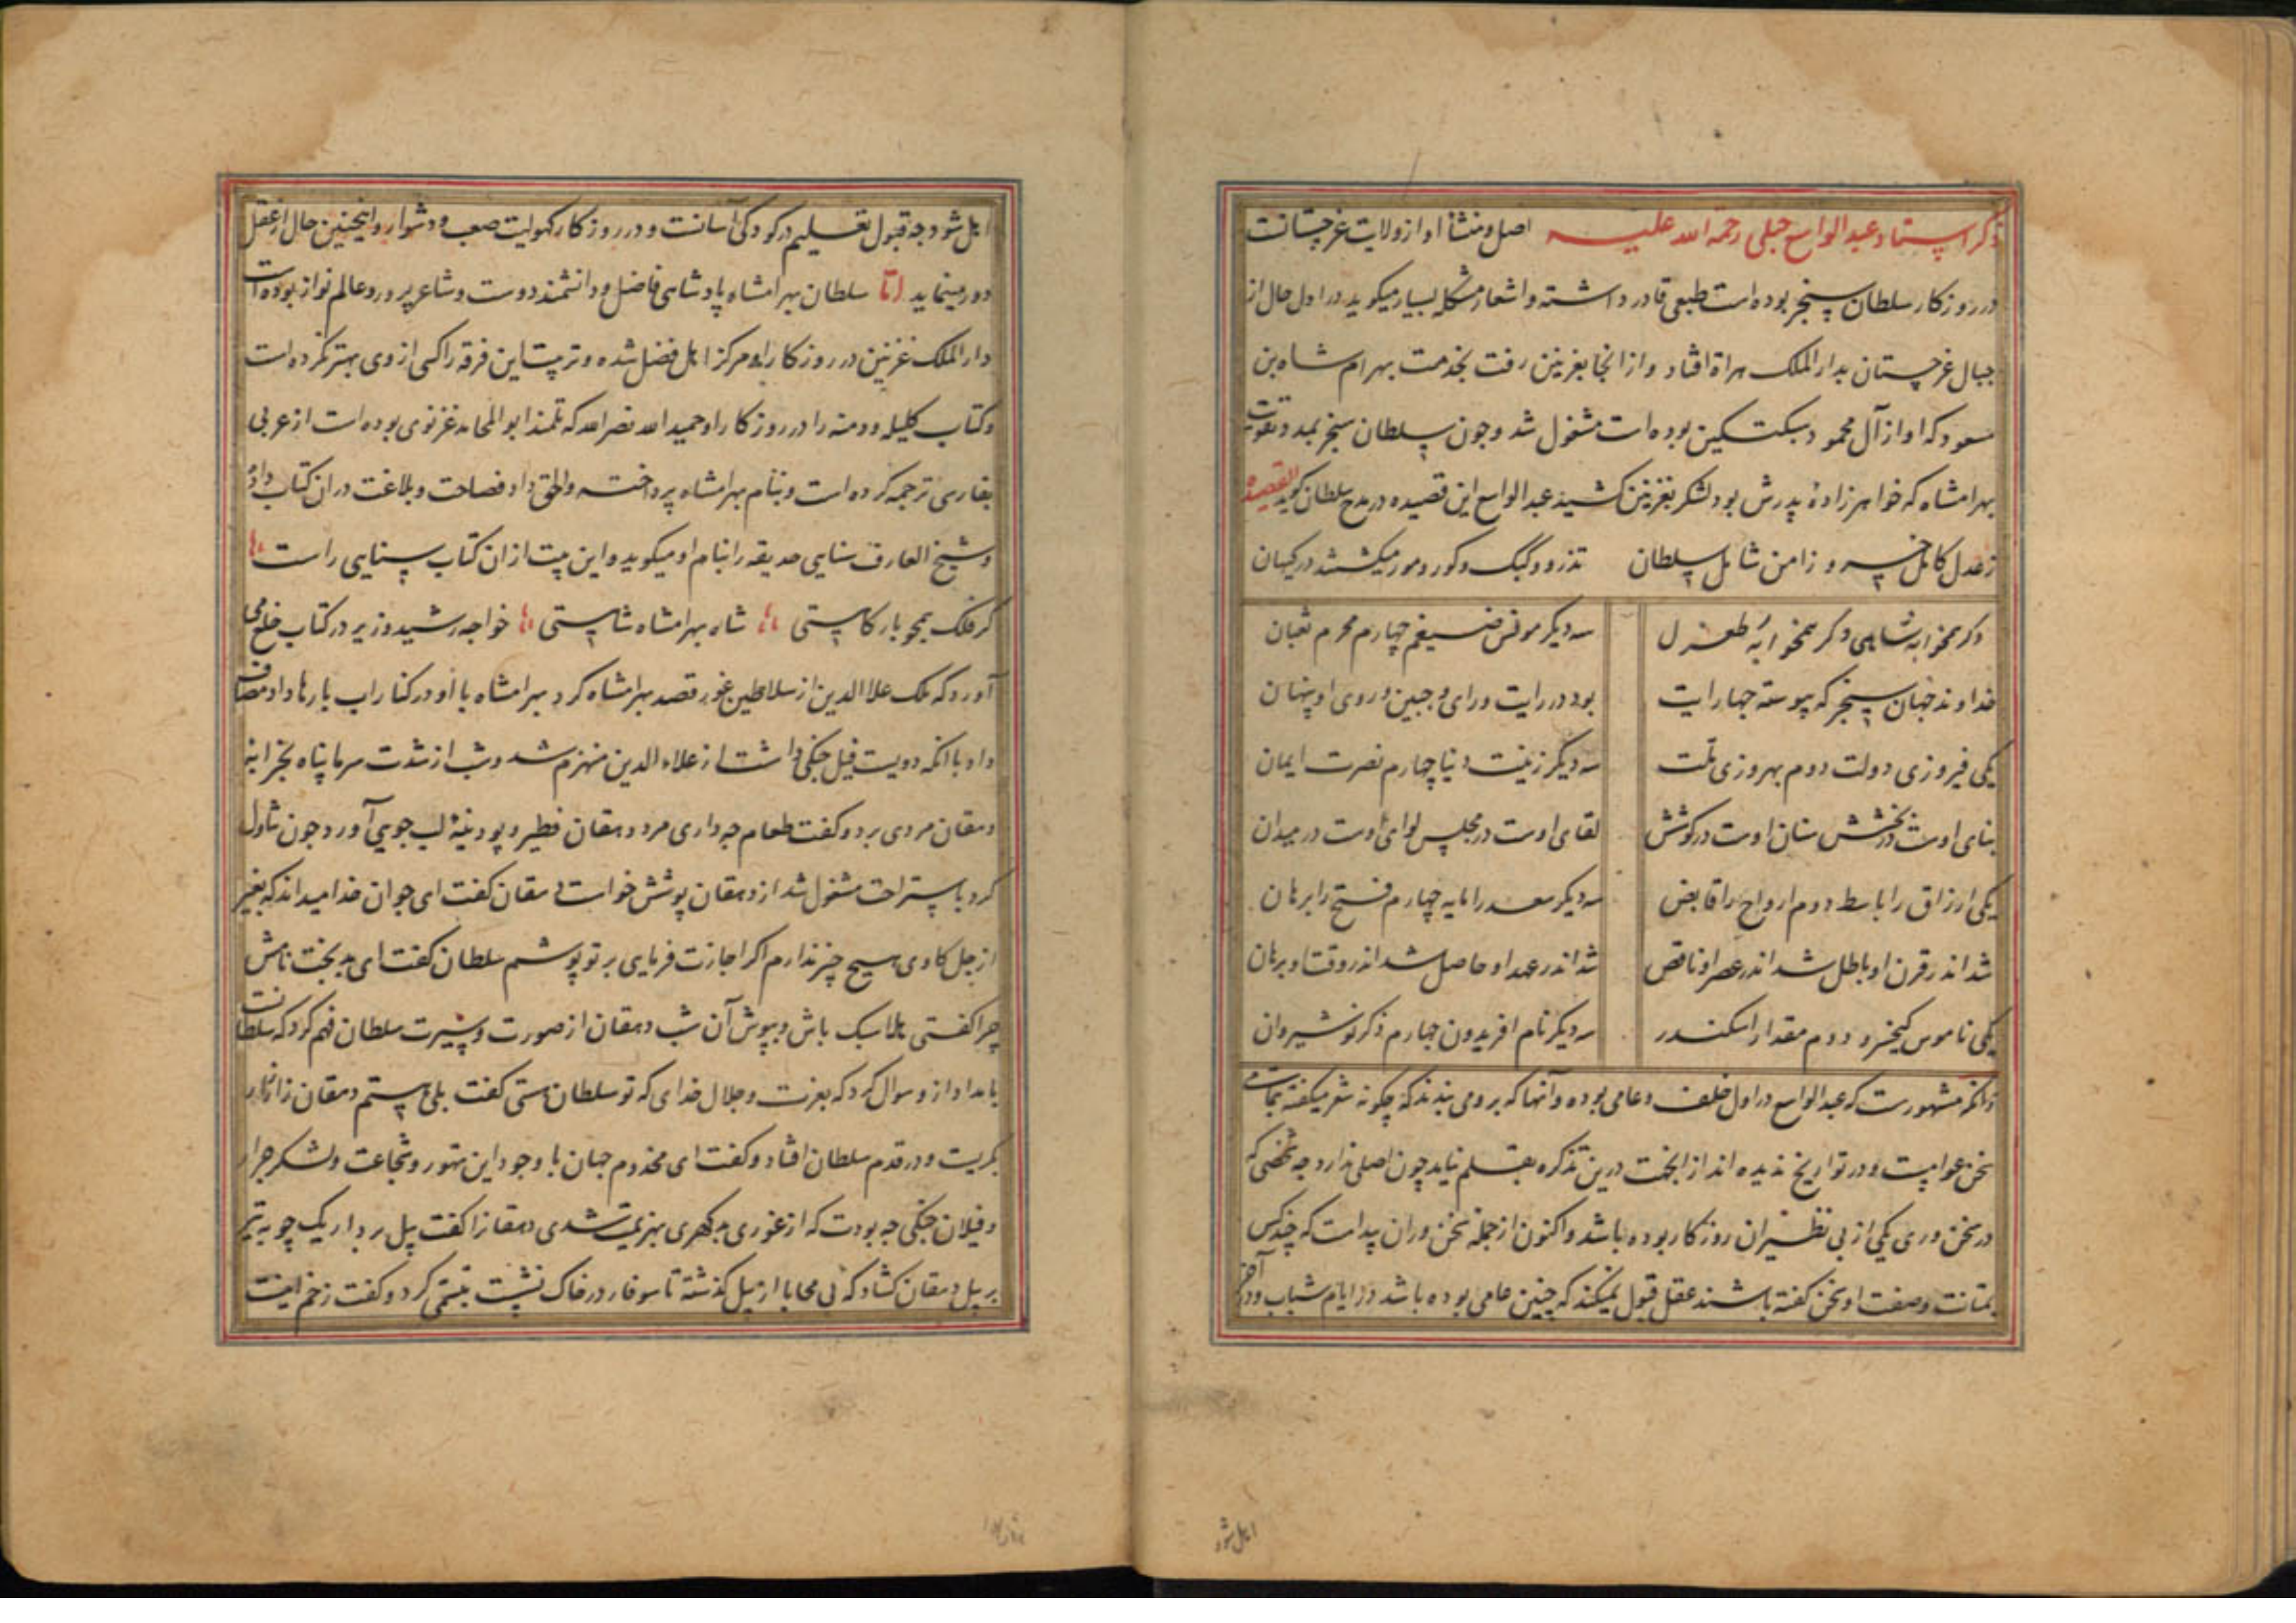 ذکر استاد عبدالواسع جبلی رحمة الله علیه اصل و منشأ او از ولایت غرجستانست
در روزکار سلطان سنجر بوده است طبعی قادر داشته و اشعار مشکله بسیار میکوید در اول حال از
جبال غرجستان بدار الملک هراة افتاد و از انجا بغزنین رفت بخدمت بهرام شاه بن
مسعود که او از آل محمود سبکتکین بوده است مشغول شد و چون سلطان سنجر بمدد و تقویت
بهرامشاه که خواهرزادهٔ پدرش بود لشکر بغزنین کشید عبدالواسع این قصیده در مدح سلطان کوید القصیده
ز عدل کامل خسرو ز امن شامل سلطان تذرو و کبک و کور و مور میکشتند در کیهان
دکر همخوابه شاهی دکر همخوابهٔ طغرل سه دیکر مونس ضیغم چهارم محرم ثعبان
خداوند جهان سنجر که پیوسته چهار ایت بود در رایت و رای و جبین و روی او پنهان
یکی فیروزی دولت دوم بهروزی ملت سه دیکر زینت دنیا چهارم نصرت ایمان
بنای اوست در بخشش سنان اوست در کوشش لقای اوست در مجلس لوای اوست در میدان
یکی ارزاق را باسط دوم ارواح را قابض سه دیکر سعد را مایه چهارم فتح را برهان
شد اندر قرن او باطل شد اندر عصر او ناقص شد اندر عهد او حاصل شد اندر وقت او برهان
یکی ناموس کیخسرو دوم مقدار اسکندر سه دیکر نام افریدون چهارم ذکر نوشیروان
و انکه مشهورست که عبدالواسع در اول خلف و عامی بوده و آنها که بر وی می بندند که چکونه شعر میکفته
سخن عوامیست و در تواریخ ندیده اند از انجهت درین تذکره بقلم نیاید چون اصلی ندارد چه شخصی که
در سخن وری یکی از بی نظیران روزکار بوده باشد و اکنون از جمله سخن وران پیداست که چند کس
بمتانت و صفت او سخن کفته باشند عقل قبول نمیکند که چنین عامی بوده باشد در ایام شباب و در آخر
اهل شود
اهل شود چه قبول تعلیم در کودکی آسانست و در روزکار کهولیت صعب و دشوار و اینچنین حال از عقل
دور مینماید اما سلطان بهرامشاه پادشاهی فاضل و دانشمند دوست و شاعر پرور و عالم نواز بوده است
دار الملک غزنین در روزکار او مرکز اهل فضل شده و تربیت این فرقه را کسی از وی بهتر نکرده است
و کتاب کلیله و دمنه را در روزکار او حمید الله نصر الله که تلمذ ابو المحامد غزنوی بوده است از عربی
بفارسی ترجمه کرده است و بنام بهرامشاه پرداخته و الحق داد فصاحت و بلاغت در ان کتاب داد
و شیخ العارف سنایی حدیقه را بنام او میکوید و این بیت از ان کتاب سنایی راست
کر فلک همچو بارکاهستی شاه بهرامشاه شاهستی خواجه رشید وزیر در کتاب
آورد که ملک علاالدین از سلاطین غور قصد بهرامشاه کرد بهرامشاه با او در کنار اب بارها داد مصاف
داد با انکه دویست فیل جنکی داشت از علاء الدین منهزم شد و شب از شدت سرما پناه بخرابه
دهقان مردی برد و کفت طعام چه داری مرد دهقان فطیر و پودنیهٔ لب جویی آورد چون تناول
کرد باستراحت مشغول شد از دهقان پوشش خواست دهقان کفت ای جوان خدا میداند که بغیر
از جل کاوی هیچ چیز ندارم اکر اجازت فرمایی بر تو پوشم سلطان کفت ای بدبخت نامش
چرا کفتی بلا سبک باش و بپوش آن شب دهقان از صورت و سیرت سلطان فهم کرد که سلطانست
بامداد از و سوال کرد که بعزت و جلال خدای که تو سلطان هستی کفت بلی هستم دهقان زار زار
بکریست و در قدم سلطان افتاد و کفت ای مخدوم جهان با وجود این تهور و شجاعت و لشکر جرار
و فیلان جنکی چه بودت که از غوری بد کهری بهزیمت شدی دهقان را کفت بیل بردار یک چوبه تیر
بر بیل دهقان کشاد که بی محابا از بیل کذشته تا سوفار در خاک نشست تبسمی کرد و کفت زخم اینست